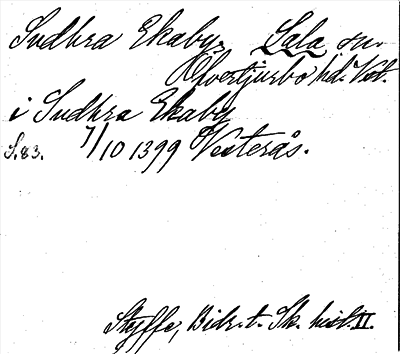 Sudhra Ekaby, Sala sn.
Öfvertjurbo hd. Vstm.
i Sudhra Ekaby
S.83. 7/10 1399 Vesterås.
Styffe, Bidr. t. Sk. hist. II.